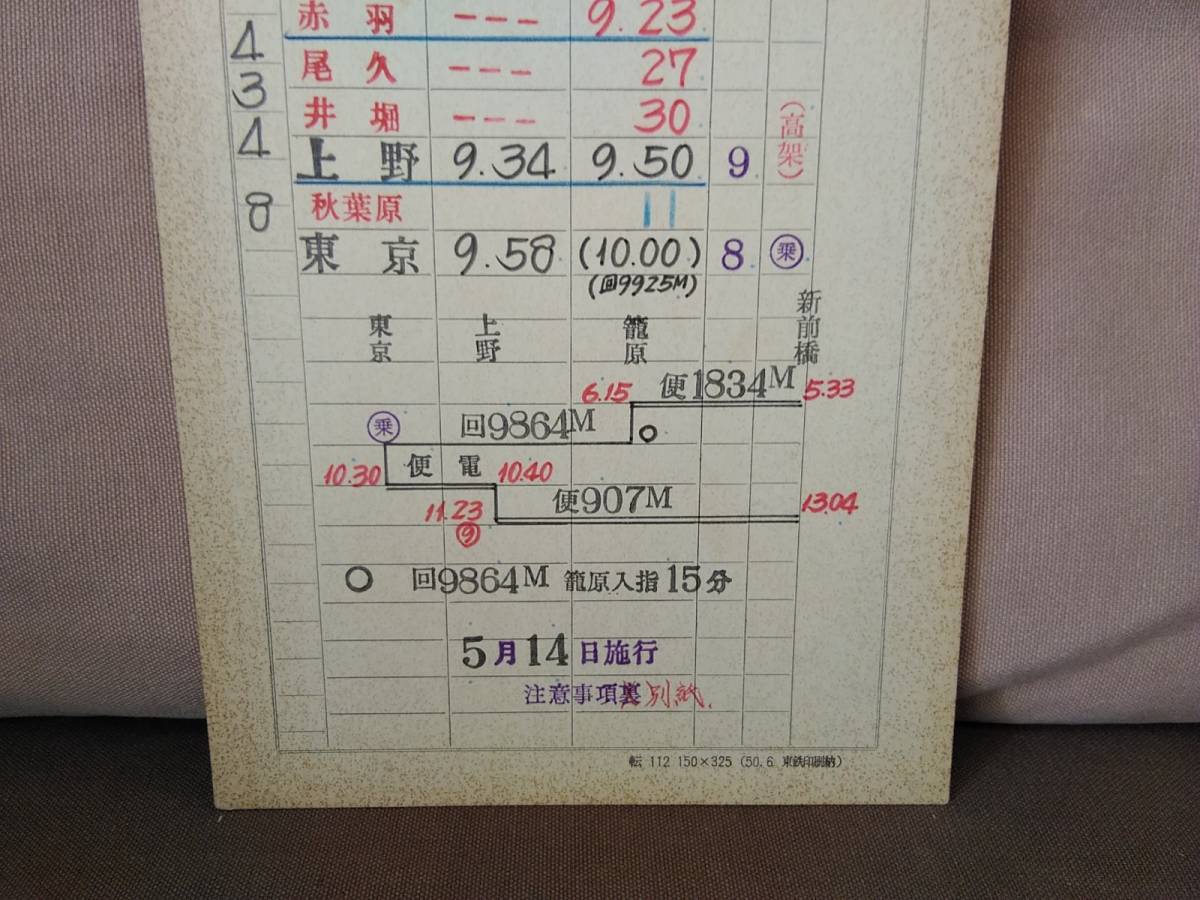 赤羽 --- 9.23
4 尾久 --- 27
3 井堀 --- 30
4 上野 9.34 9.50 9 (高架)
8 秋葉原 11
東京 9.58 (10.00) 8 乗
(回9925M)
東京 上野 籠原 新前橋
6.15 便1834M 5.33
乗 回9864M
10.30 便電 10.40
11.23 便907M 13.04
9
○ 回9864M 籠原入指15分
5月14日施行
注意事項裏別紙.
転 112 150×325 (50.6 東鉄印刷納)